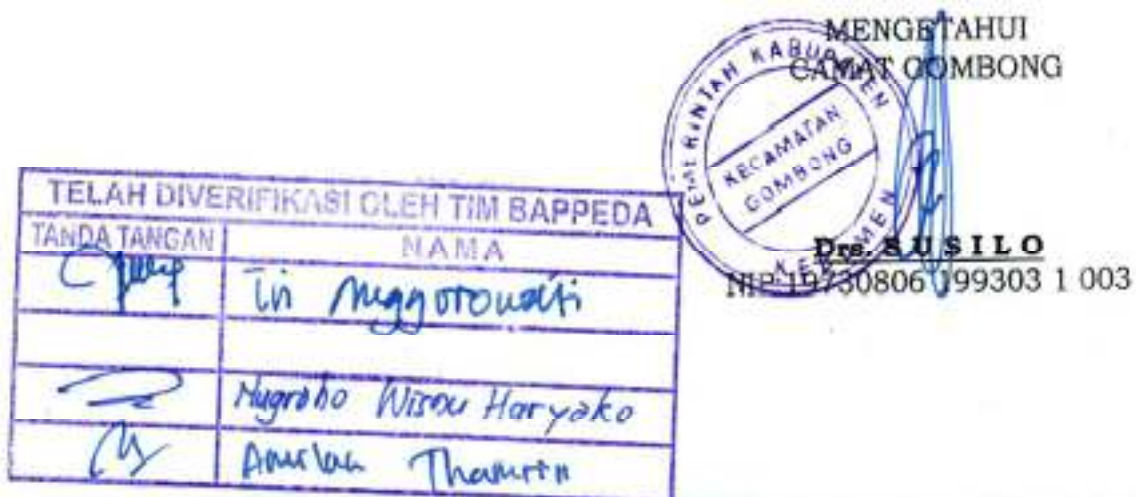 MENGETAHUI
CAMAT GOMBONG
PEMERINTAH KABUPATEN
KECAMATAN
GOMBONG
KEBUMEN
Drs. SUSILO
NIP 19730806 199303 1 003
TELAH DIVERIFIKASI OLEH TIM BAPPEDA
TANDA TANGAN NAMA
Tri
Nugroho Wisnu Haryoko
Thamrin